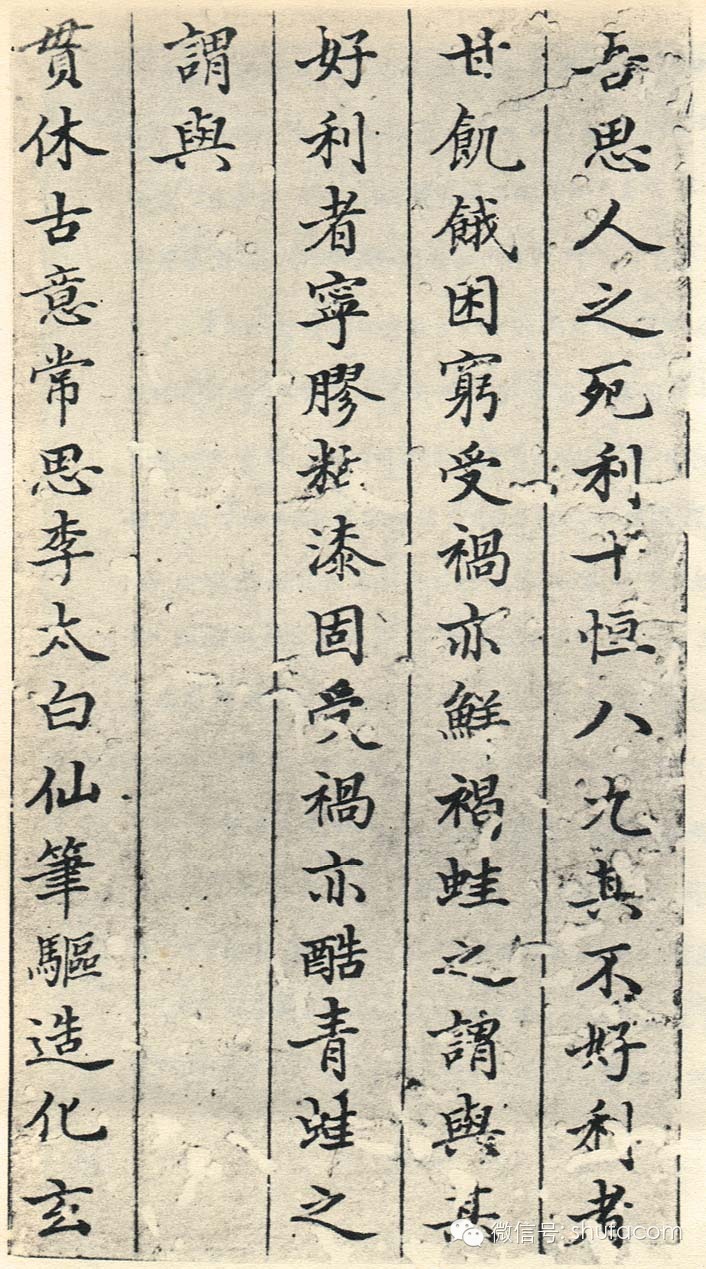 吾思人之死利十恒八九其不好利者
甘飢餓困窮受禍亦鮮褐蛙之謂與其
好利者寧膠粘漆固受禍亦酷青蛙之
謂與
貫休古意常思李太白仙筆驅造化玄
微信号: shufacom